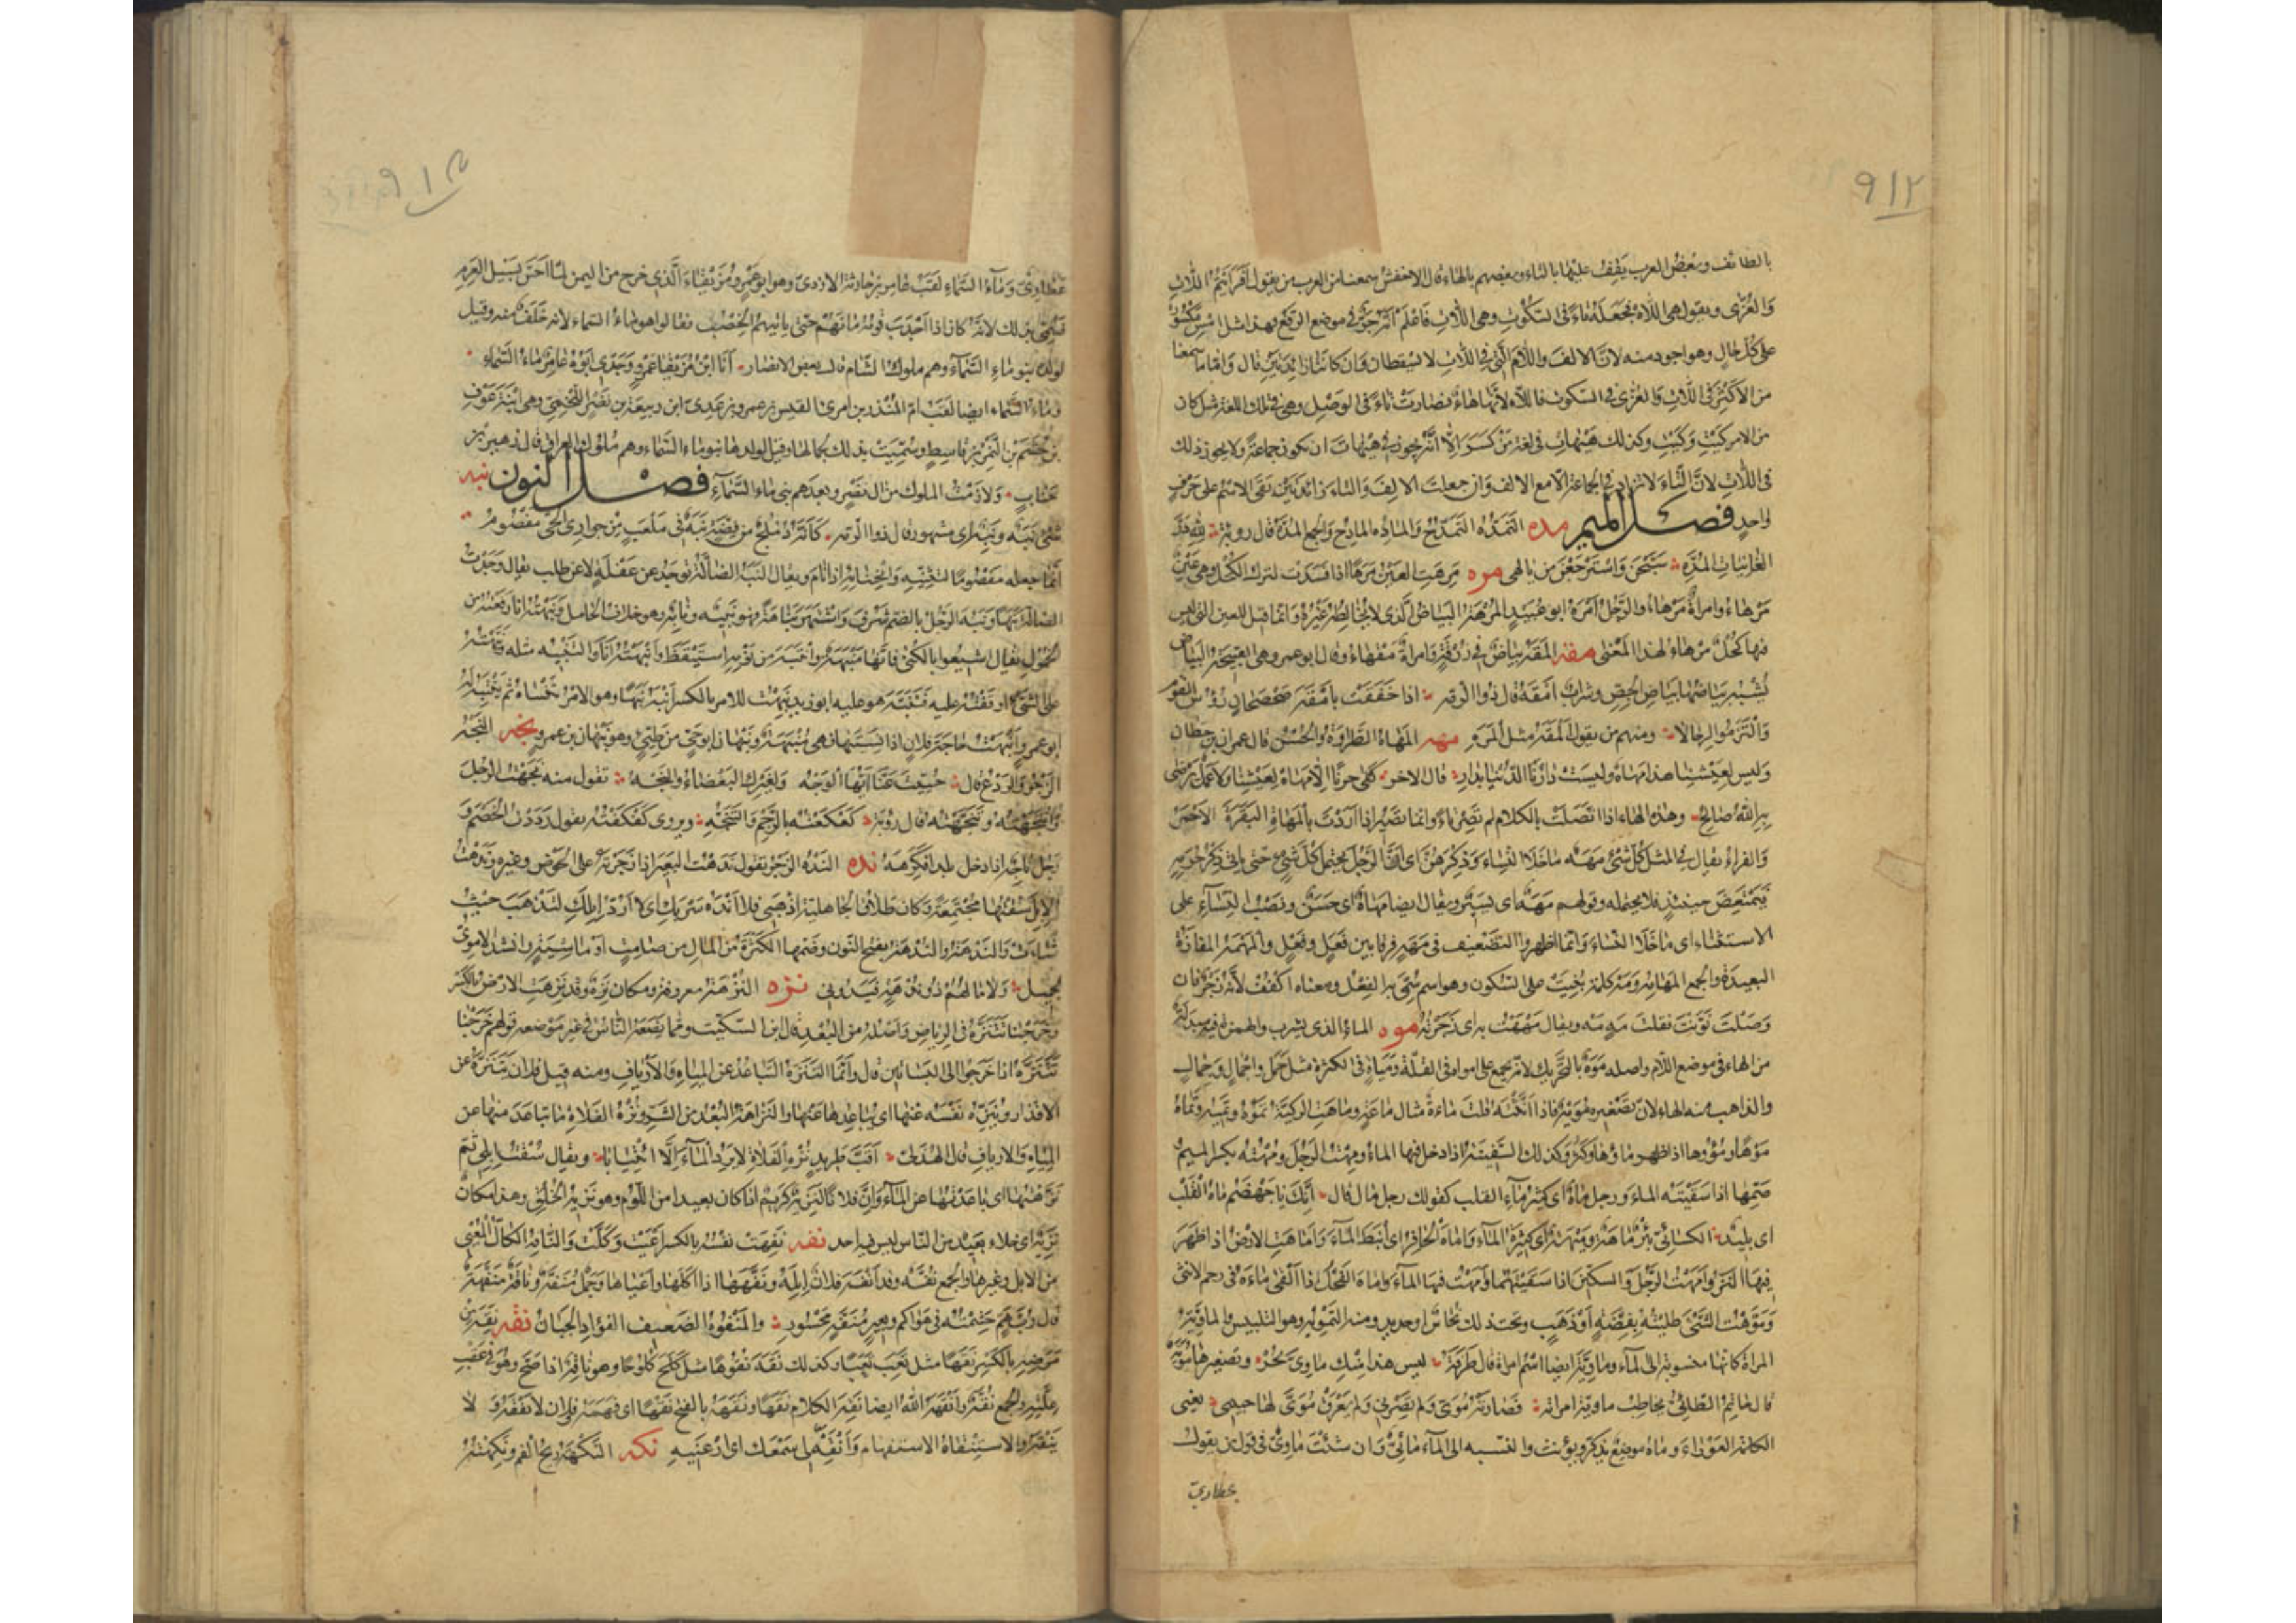 ٩١٢
بالطائف وبعض العرب يقف عليها بالتاء وبعضهم بالهاء قال الاخفش سمعنا من العرب من يقول أفرأيتم اللات
والعزى ويقول هي اللاه فجعله تاء في السكوت وهي اللات فاعلم انه جر في موضع الرفع فهذا مثل امس مكسور
على كل حال وهو اجود منه لان الالف واللام التي في اللات لا تسقطان وان كانتا زائدتين قال واما ما سمعنا
من الاكثر في اللات والعزى في السكوت فاللاه لانها هاء فصارت تاء في الوصل وهي في تلك اللغة مثل كان
من الامر كيت وكيت وكذلك هيهات في لغة من كسر الا انه يجوز في هيهات ان تكون جماعة ولا يجوز ذلك
في اللات لان التاء لا تزاد في الجماعة الا مع الالف وان جعلت الالف والتاء زائدتين بقي الاسم على حرف
واحد فصل الميم مده التمده التمدح والماده المادح والجمع المده قال رؤبة لله در
الغانيات المده سبحن واسترجعن من تالهي مره مرهت العين مرها اذا فسدت لترك الكحل وهي عين
مرهاء وامراة مرهاء والرجل امره ابو عبيد المرهة البياض الذي لا يخالطه غيره وانما قيل للعين التي ليس
فيها كحل مرهاء لهذا المعنى مقه المقه بياض في زرقة وامراة مقهاء وقال ابو عمرو هي القبيحة البياض
يشبه بياضها بياض الجص وسراب امقه قال ذو الرمة اذا خفقت بامقه صحصحان رؤس القوم
والتزموا الرحالا ومنهم من يقول المقه مثل المره مهه المهاه الطراوة والحسن قال عمران بن حطان
وليس لعيشنا هذا مهاه وليست دارنا الدنيا بدار قال الاخر كفى حزنا ان لا مهاه لعيشنا ولا عمل يرضى
به الله صالح وهذه الهاء اذا اتصلت بالكلام لم تصر تاء وانما تصير اذا اردت بالمهاة البقرة الاحمر
والفراء يقال في المثل كل شيء مهه ما خلا النساء وذكرهن اي ان الرجل يحتمل كل شيء حتى ياتي ذكر حرمه
فيمتعض حينئذ فلا يحتمله وقولهم مهه اي يسير ويقال ايضا مهاه اي حسن ونصب النساء على
الاستثناء اي ما خلا النساء وانما اظهروا التضعيف في مهه فرقا بين فعل وفعل والمهمه المفازة
البعيدة والجمع المهامه ومه كلمة بنيت على السكون وهو اسم سمي به الفعل ومعناه اكفف لانه زجر فان
وصلت نونت فقلت مه مه ويقال مهمهت به اي زجرته موه الماء الذي يشرب والهمزة فيه مبدلة
من الهاء في موضع اللام واصله موه بالتحريك لانه يجمع على امواه في القلة ومياه في الكثرة مثل جمل واجمال وجمال
والذاهب منه الهاء لان تصغيره مويه فاذا انثته قلت ماءة مثال ماعة وماهت الركية تموه وتميه وتماه
موها ومؤوها اذا ظهر ماؤها وكثر وكذلك السفينة اذا دخل فيها الماء ومهت الرجل ومهته بكسر الميم
ضمها اذا سقيته الماء ورجل ماه اي كثير ماء القلب كقولك رجل مال قال انك يا جهضم ماه القلب
اي بليد الكسائي بئر ماهة وميهة اي كثيرة الماء واماه الحافر اي انبط الماء واماهت الارض اذا ظهر
فيها النز وامهت الرجل والسكين اذا سقيتهما وامهت فيها الماء واماه الفحل اذا القى ماءه في رحم لانثى
وموهت الشيء طليته بفضة او ذهب وتحت ذلك نحاس او حديد ومنه التمويه وهو التلبيس والماوية
المراة كانها منسوبة الى الماء وماوية ايضا اسم امراة قال طرفة ليس هذا منك ماوي بحر وتصغيرها موية
قال حاتم الطائي يخاطب ماوية امراته فضارته موي ولم تضرني ولم يعرق موي لها جبيني يعني
الكلمة العوراء وماه موضع يذكر ويؤنث والنسبه الى الماء مائي وان شئت ماوي في قول من يقول
عطاوي
٩١٣
عطاوي وماء السماء لقب عامر بن حارثة الازدي وهو ابو عمرو مزيقياء الذي خرج من اليمن لما احس بسيل العرم
فسمي بذلك لانه كان اذا اجدب قومه مانهم حتى ياتيهم الخصب فقالوا هو ماء السماء لانه خلف منه وقيل
لولده بنو ماء السماء وهم ملوك الشام قال بعض الانصار انا ابن مزيقيا عمرو وجدي ابوه عامر ماء السماء
وماء السماء ايضا لقب ام المنذر بن امرئ القيس بن عمرو بن عدي ابن ربيعة بن نصر اللخمي وهي ابنة عوف
بن جشم بن النمر بن قاسط وسميت بذلك لجمالها وقيل لولدها بنو ماء السماء وهم ملوك العراق قال زهير بن
جناب ولازمت الملوك من ال نصر وبعدهم بني ماء السماء فصل النون نبه
شيء نبه ونبه اي مشهور قال ذو الرمة كانه دملج من فضة نبه في ملعب من جواري الحي مفصوم
انما جعله مفصوما لتثنيه وانحنائه اذا نام ويقال النبه الضالة توجد عن غفلة لا عن طلب يقال وجدت
الضالة نبها ونبه الرجل بالضم شرف واشتهر نباهة فهو نبيه ونابه وهو خلاف الخامل ونبهته انا رفعته من
الخمول يقال اشيعوا بالكنى فانها منبهة وانتبه من نومه استيقظ وانبهته انا والتنبيه مثله ونبهته
على الشيء اوقفته عليه فتنبه هو عليه ابو زيد نبهت للامر بالكسر انبه نبها وهو الامر تنساه ثم تنتبه له
ابو عمرو انبهت حاجة فلان اذا نسيتها فهي منبهة ونبهان ابو حي من طيئ وهو نبهان بن عمرو نجه النجه
الزجر والردع قال حييت عنا ايها الوجه ولغيرك البغضاء والنجه تقول منه نجهت الرجل
وانتجهته وتنجهته قال رؤبة كعكعته بالرجم والتنجه ويروى كفكفته يقول رددت الخصم و
رجل ناجه اذا دخل بلدا فكرهه نده النده الزجر تقول ندهت البعير اذا زجرته على الحوض وغيره وندهت
الابل سقتها مجتمعة وكان طلاق الجاهلية اذهبي فلا انده سربك اي لا ارد ابلك لتذهب حيث
شاءت والندهة والندهة بفتح النون وضمها الكثرة من المال من صامت او ماشية وانشد الاموي
لجميل ولا مالهم ذو ندهة فيدوني نزه النزهة معروفة ومكان نزه وقد نزهت الارض بالكسر
وخرجنا نتنزه في الرياض واصله من البعد قال ابن السكيت ومما يضعه الناس في غير موضعه قولهم خرجنا
نتنزه اذا خرجوا الى البساتين قال وانما التنزه التباعد عن المياه والارياف ومنه قيل فلان يتنزه عن
الاقذار وينزه نفسه عنها اي يباعدها عنها والنزاهة البعد من السوء ونزه الفلاة ما تباعد منها عن
المياه والارياف قال الهذلي اقب طريد بنزه الفلاة لا يرد الماء الا انتيابا ويقال سقت ابلي ثم
نزهتها اي باعدتها عن الماء وان فلانا لنزيه كريم اذا كان بعيدا من اللؤم وهو نزيه الخلق وهذا مكان
نزيه اي خلاء بعيد من الناس ليس فيه احد نفه نفهت نفسه بالكسر اعيت وكلت والنافه الكال المعيي
من الابل وغيرها والجمع نفه وقد انفه فلان ابله ونفهها اذا اكلها واعياها وجمل منفه وناقة منفهة
قال رب هم جشمته في هواكم وبعير منفه محسور والمنفوه الضعيف الفؤاد الجبان نقه نقه من
مرضه بالكسر نقها مثل تعب تعبا وكذلك نقه نقوها مثل كلح كلوحا وهو ناقه اذا صح وهو في عقب
علته والجمع نقه وانقهه الله ايضا نقه الكلام نقها ونقهه بالفتح نقها اي فهمه فلان لا يفقه ولا
ينقه والاستنقاه الاستفهام وانقه لي سمعك اي ارعنيه نكه النكهة ريح الفم ونكهته